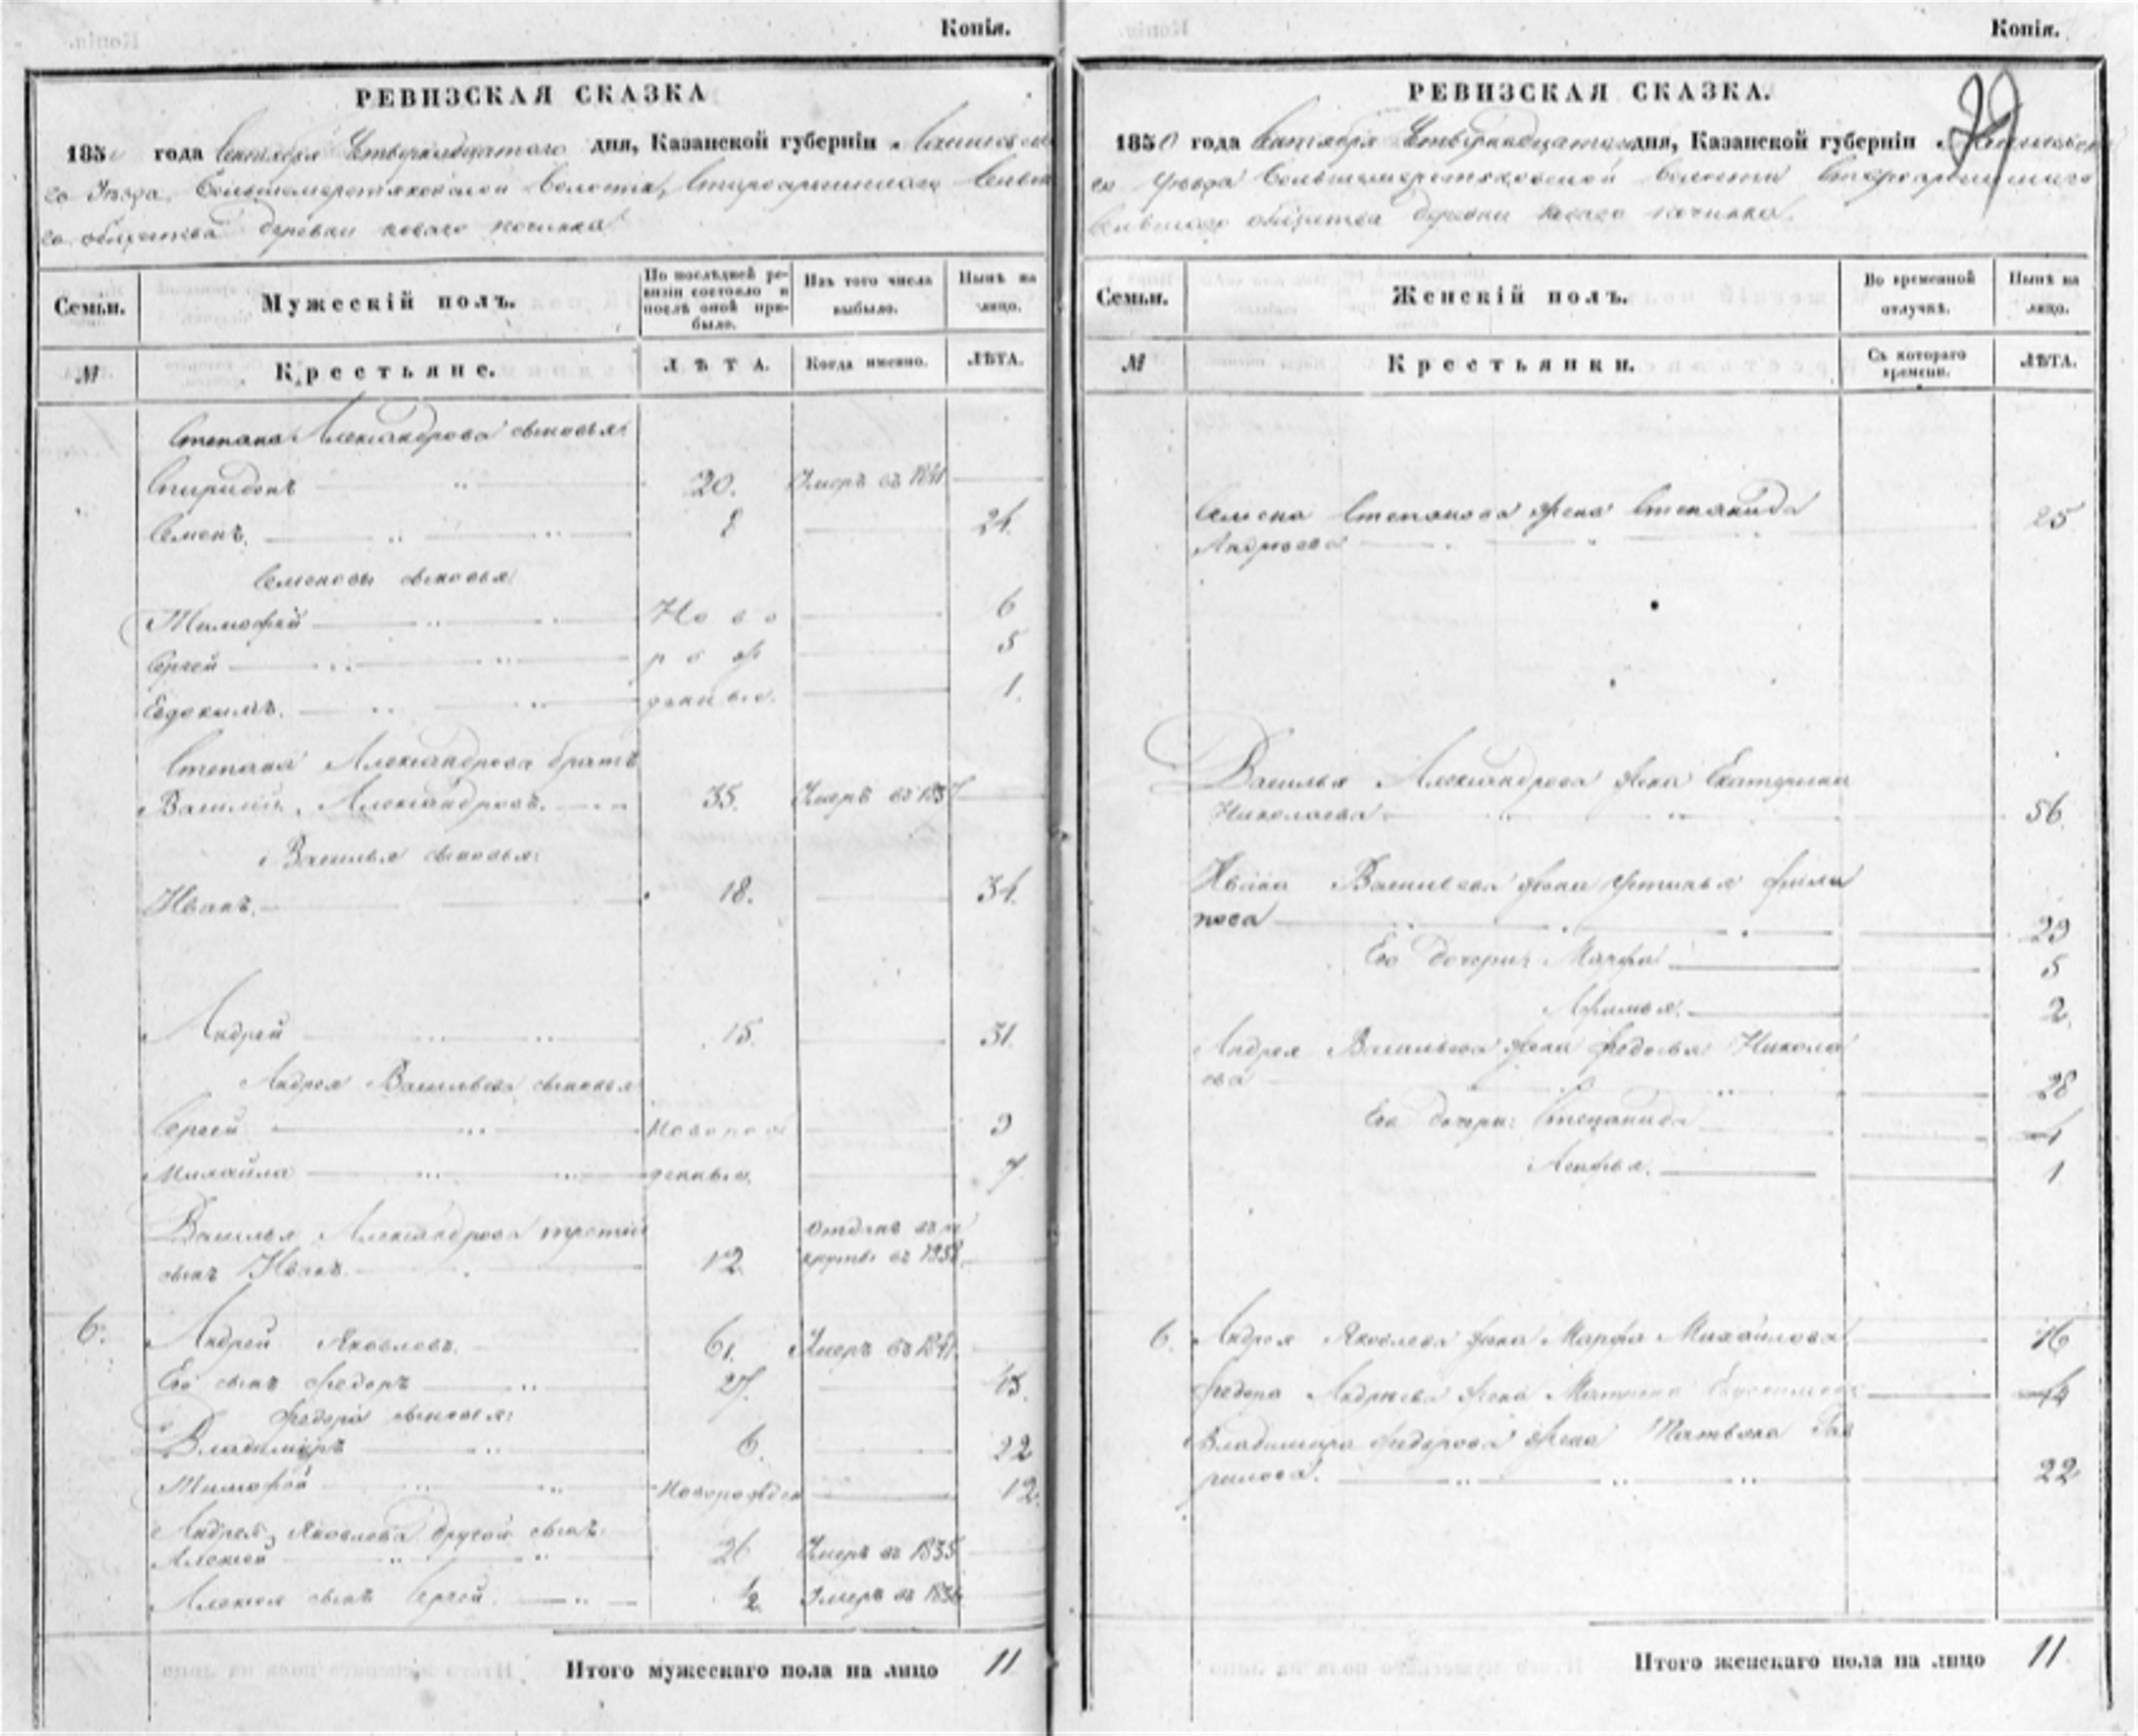 Копія.
РЕВИЗСКАЯ СКАЗКА
185 года Сентября Четвернадцатаго дня, Казанской губерніи Лаишевска
го Уѣзда, Волости, Староарышскаго Сельска
го общества деревни новаго починка
Семьи.
Мужескій полъ.
По послѣдней ре-
визіи состояло и
послѣ оной при-
было.
Изъ того числа
выбыло.
Нынѣ на
лицо.
№
Крестьяне.
ЛѢТА.
Когда именно.
ЛѢТА.
Степана Александрова сыновья:
Спиридонъ 20. Умеръ въ 1841
Семенъ. 8 24.
Семеновы сыновья
Тимофей Ново 6
Сергей рож 5
Евдокимъ. денные. 1.
Степана Александрова братъ
Василий Александровъ. 35. Умеръ въ 1837
Василья сыновья:
Иванъ. 18. 34.
Андрей 15. 31.
Андрея Васильева сыновья
Сергей Новорож 9
Михайла денные. 7.
Василья Александрова третій Отданъ въ ре
сынъ Иванъ. 12. круты въ
6. Андрей Яковлевъ. 61. Умеръ въ 1841.
Его сынъ Федоръ 27. 43.
Федора сыновья:
Владимиръ 6. 22
Тимофей Новорожден 12.
Андрея Яковлева другой сынъ
Алексей 26 Умеръ въ 1835
Алексея сынъ Сергей. 1/2 Умеръ въ 1836
Итого мужескаго пола на лицо 11
Копія.
29
РЕВИЗСКАЯ СКАЗКА.
1850 года Сентября Четвернадцатаго дня, Казанской губерніи Лаишевска
го Уѣзда Волости Староарышскаго
Сельскаго общества деревни новаго починка.
Семьи.
Женскій полъ.
Во временной
отлучкѣ.
Нынѣ на
лицо.
№
Крестьянки.
Съ котораго
времени.
ЛѢТА.
Семена Степанова жена Степанида 25
Андреева
Василья Александрова жена Екатерина
Николаева 56.
Ивана Васильева жена Устинья Фили
пова 29
Его дочери: Марфа 5
2.
Андрея Васильева жена Федосья Никола
ева 28
Его дочери: Степанида 4
Агафья. 1
6. Андрея Яковлева жена Марфа Михайлова 46
Федора Андреева жена Матрена 44
Владимира Федорова жена Татьяна Гав
рилова. 22
Итого женскаго пола на лицо 11